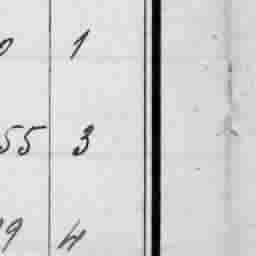 0 1
55 3
19 4